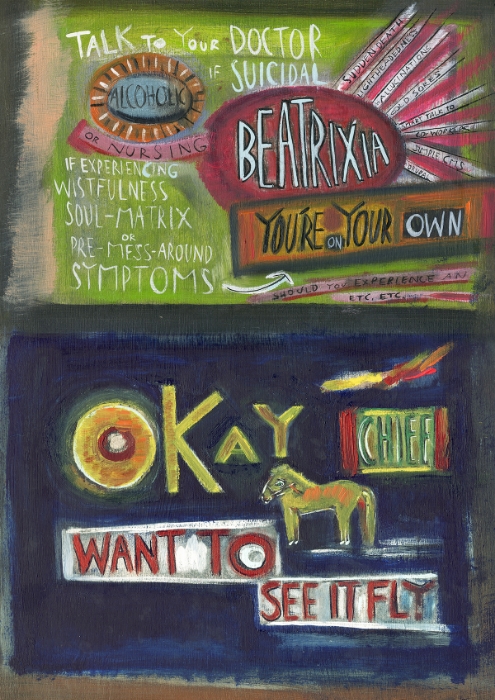 TALK TO YOUR DOCTOR
IF SUICIDAL
ALCOHOLIC
OR NURSING
IF EXPERIENCING
WISTFULNESS
SOUL-MATRIX
OR
PRE-MESS-AROUND
SYMPTOMS
BEATRIXIA
YOU'RE ON YOUR OWN
SUDDEN DEATH
HALLUCINATIONS
SHOULD YOU EXPERIENCE AN
ETC, ETC.
OKAY
CHIEF
WANT TO
SEE IT FLY